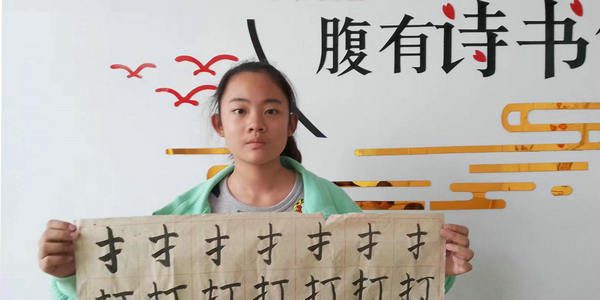 腹有诗书
扌扌扌扌扌扌扌
打打打打打打打